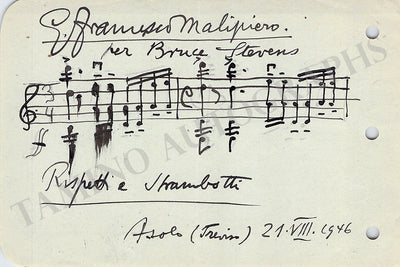 G. Francesco Malipiero.
per Bruce Stevens
3
4
C
Rispetti e Strambotti
Asolo (Treviso) 21.VIII.1946
TAMINO AUTOGRAPHS